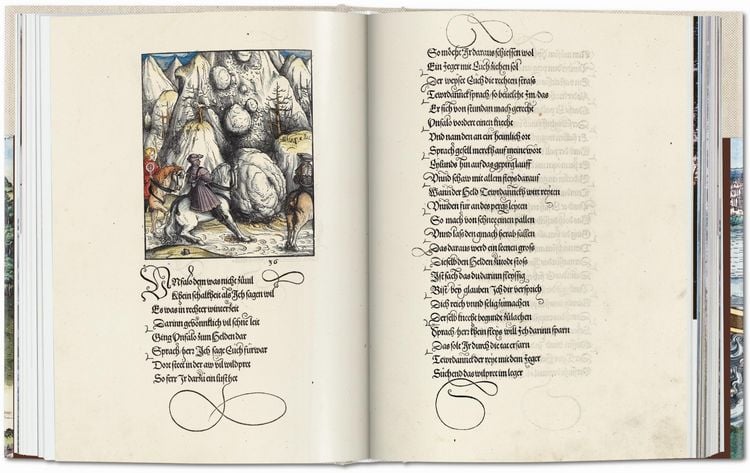 36
Unfalo dem was nicht zuuil
Khein schalkheit als Ich sagen wil
Es was in rechter winterzeit
Darinn gewönnlich vil schne leit
Ging Unfalo zům Helden dar
Sprach herr Ich sage Euch fürwar
Dort steet in der aw vil wildpret
So ferr Ir darzů ein lust het
So möcht Ir daraus schiessen wol
Ein Jeger mit Euch ziehen sol
Der weyset Euch die rechten strass
Tewrdannck sprach so beuelcht Im das
Er sich von stundan mach gerecht
Unfalo vordert einen knecht
Unnd nam den an ein heimlich ort
Sprach gesell merckh auf meine wort
Eyllunds hin auf das gepirg lauff
Unnd schaw mit allem fleys darauf
Wann der Held Tewrdannckh wirt reyten
Unnden für an des pergs leyten
So mach von schne einen pallen
Unnd lass den gmach herab fallen
Das daraus werd ein leenen gross
Dieselb den Helden zů todt stoss
Ist sach das du darinn fleyssig
Bist bey glauben Ich dir versprich
Dich reich unnd selig zů machen
Derselb knecht begundt zů lachen
Sprach herr khein fleys will Ich darinn sparn
Das solt Ir durch die tat erfarn
Tewrdannck der reyt mit dem Jeger
Sůchend das wilpret im leger